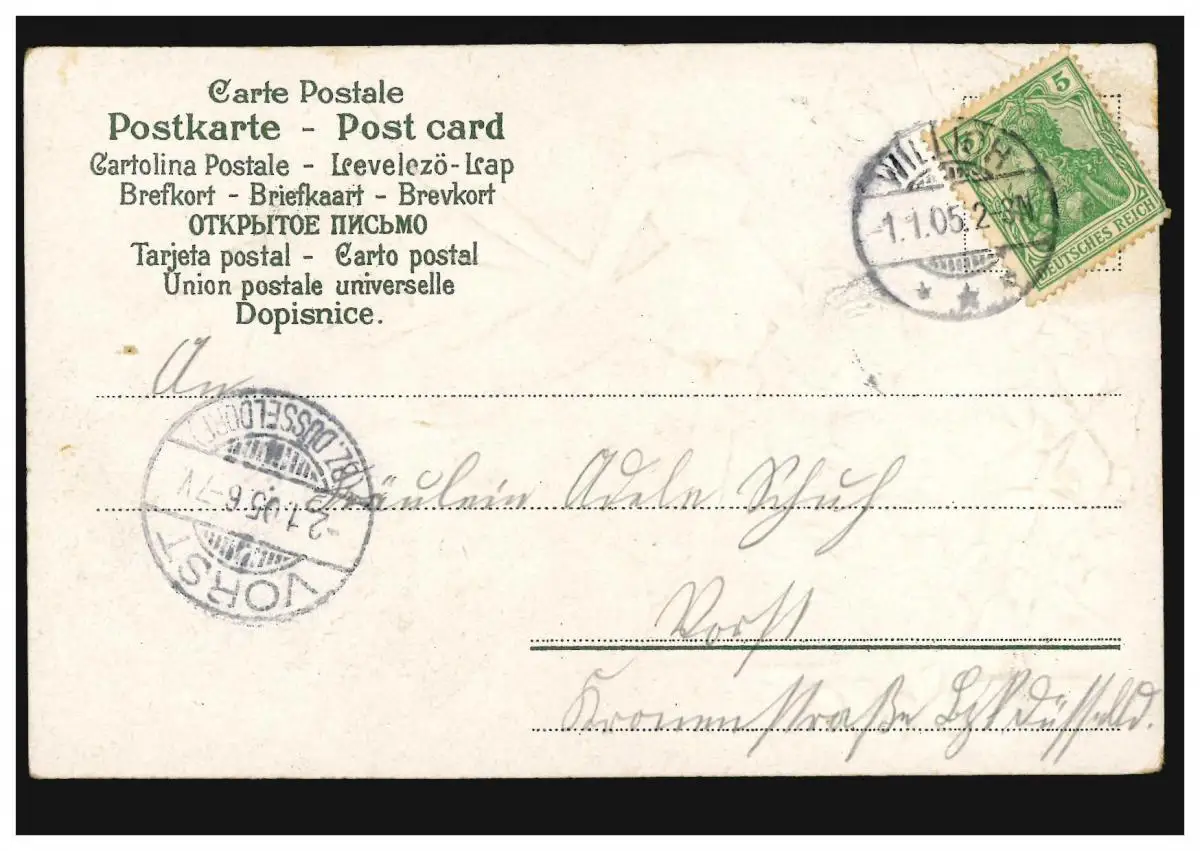 Carte Postale
Postkarte - Post card
Cartolina Postale - Levelező-Lap
Brefkort - Briefkaart - Brevkort
ОТКРЫТОЕ ПИСЬМО
Tarjeta postal - Carto postal
Union postale universelle
Dopisnice.
5
DEUTSCHES REICH
WILLICH
1.1.05. 2-3N
An
Fräulein Adele Schuh
Vorst
Kronenstraße Bzk Düsseld.
(BZ. DÜSSELDORF)
-2.1.05. 6-7V.
VORST